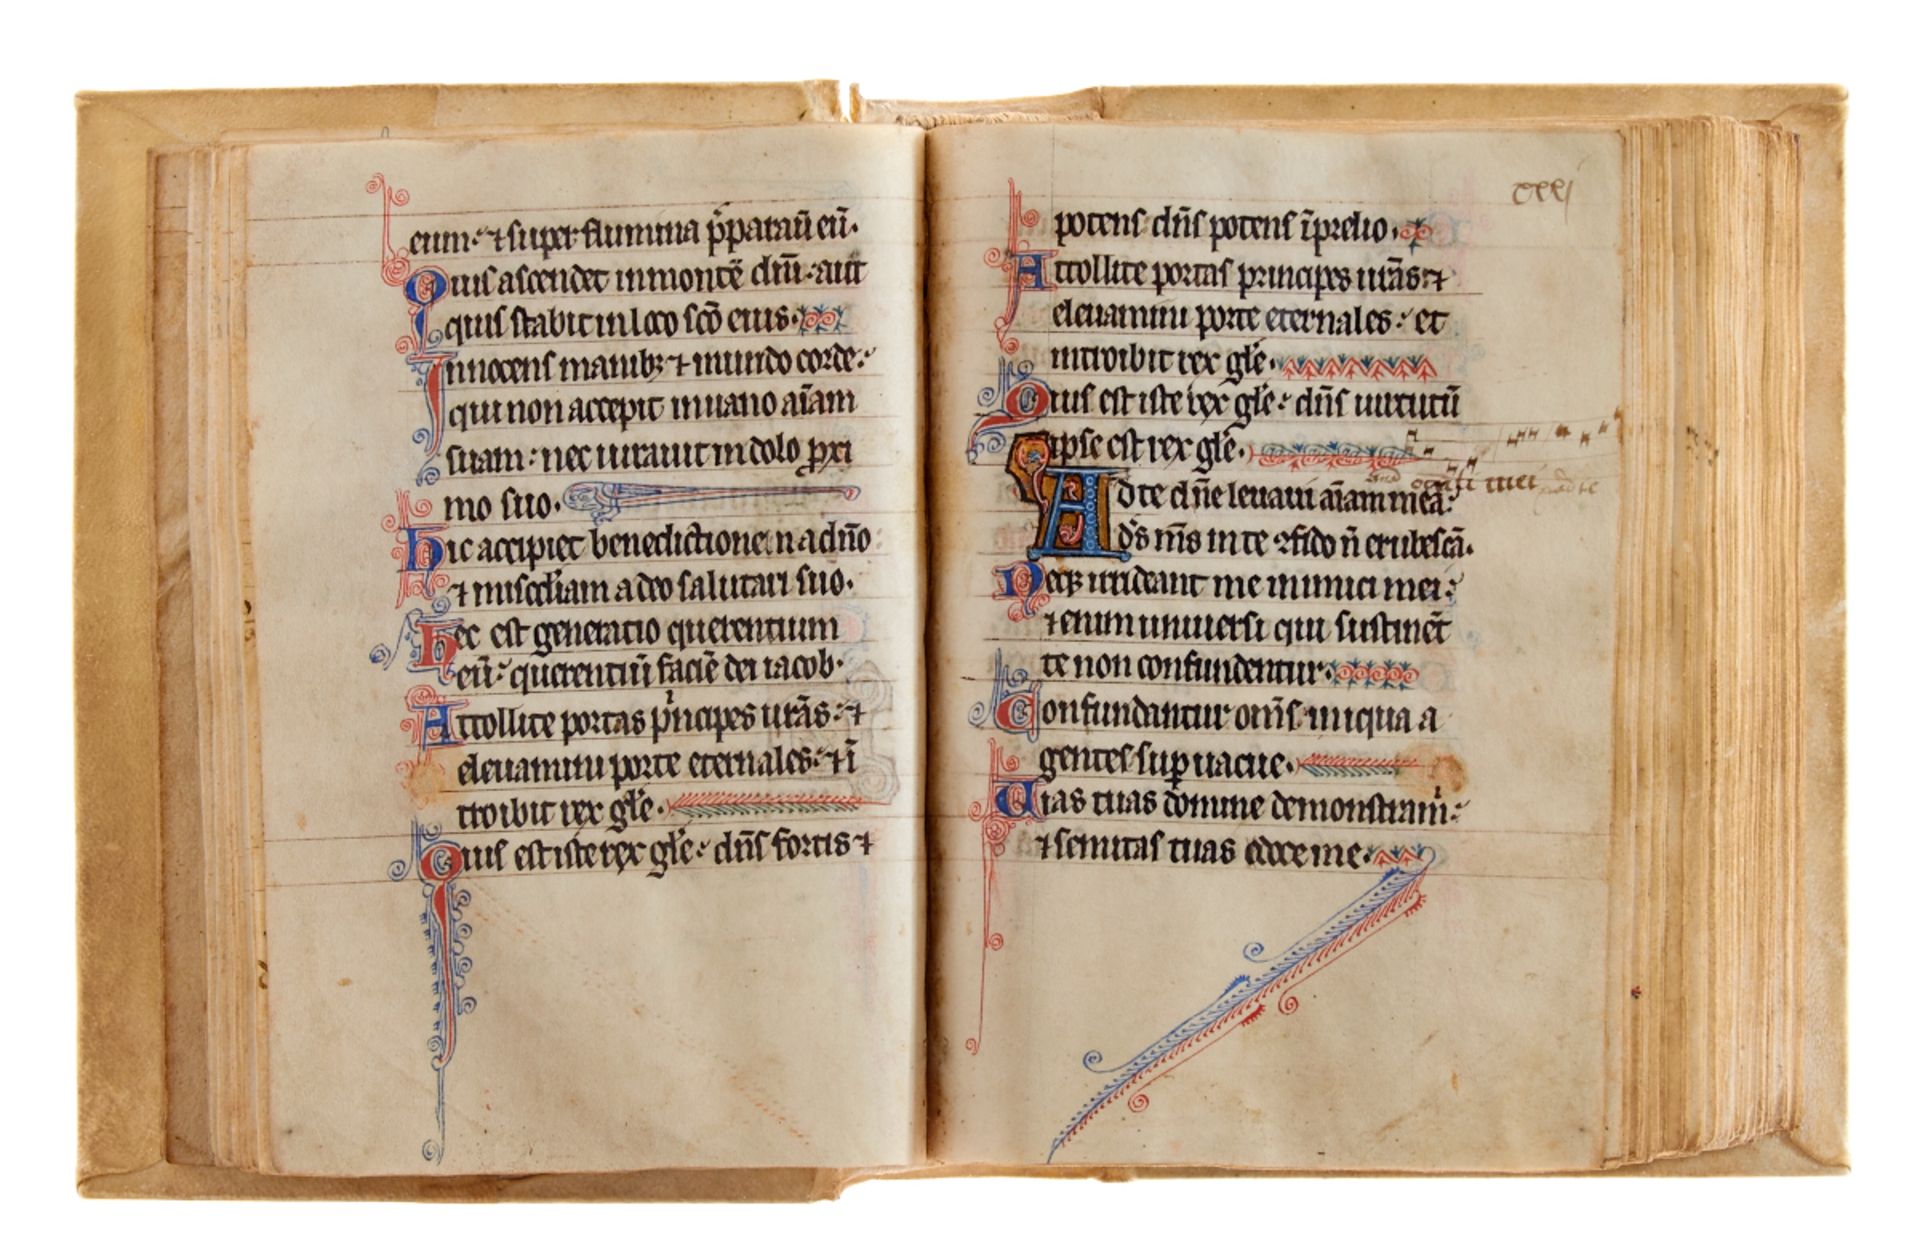 eum· ⁊ super flumina p̄parauit̄ eū·
Quis ascendet in montē dn̄i· aut
quis stabit in loco sc̄o eius·
Innocens manibꝫ ⁊ mundo corde·
qui non accepit in uano aīam
suam· nec iurauit in dolo ꝓxi
mo suo·
Hic accipiet benedictionem a dn̄o
⁊ mis̄c̄diam a deo salutari suo·
Hec est generatio querentium
eū· querentiū faciē dei iacob·
Attollite portas p̍ncipes urās· ⁊
eleuamini porte eternales· ⁊ ī
troibit rex gl̄e·
Quis est iste rex gl̄e· dn̄s fortis ⁊
cxxj
potens dn̄s potens ī prelio·
Attollite portas principes urās ⁊
eleuamini porte eternales· et
introibit rex gl̄e·
Quis est iste rex gl̄e· dn̄s uirtutū
ipse est rex gl̄e·
oculi mei
Ad te dn̄e leuaui aīam meā·
ds̄ ms̄ in te ꝯfido n̄ erubescā·
Neqꝫ irrideant me inimici mei·
⁊ enim uniuersi qui sustinēt
te non confundentur·
Confundantur om̄s iniqua a
gentes suꝑuacue·
Uias tuas domine demonstra m̍·
⁊ semitas tuas edoce me·